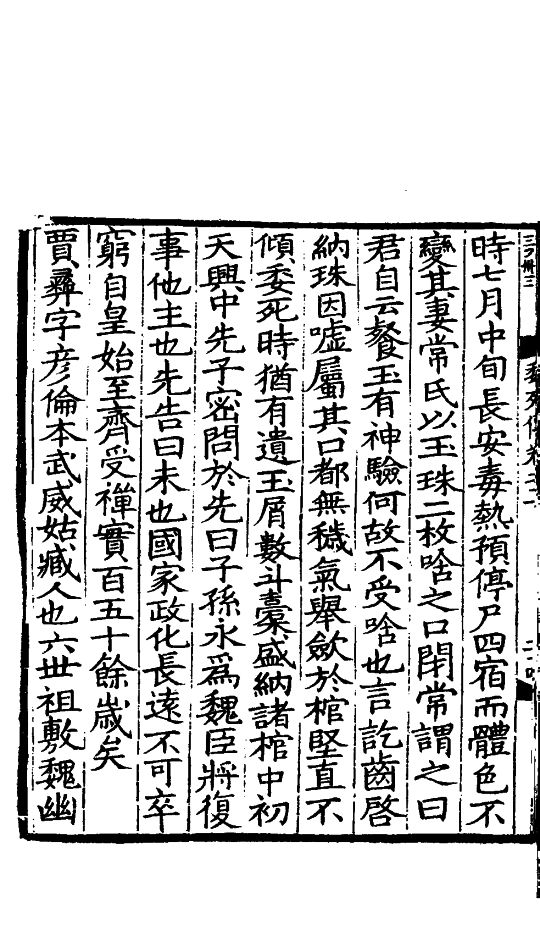 時七月中旬長安毒熱預停尸四宿而體色不
變其妻常氏以玉珠二枚唅之口閉常謂之曰
君自云飱玉有神驗何故不受唅也言訖齒啓
納珠因噓屬其口都無穢氣舉斂於棺堅直不
傾委死時猶有遺玉屑數斗橐盛納諸棺中初
天興中先子密問於先曰子孫永爲魏臣將復
事他主也先告曰未也國家政化長遠不可卒
窮自皇始至齊受禪實百五十餘歲矣
賈彝字彦倫本武威姑臧人也六世祖敷魏幽